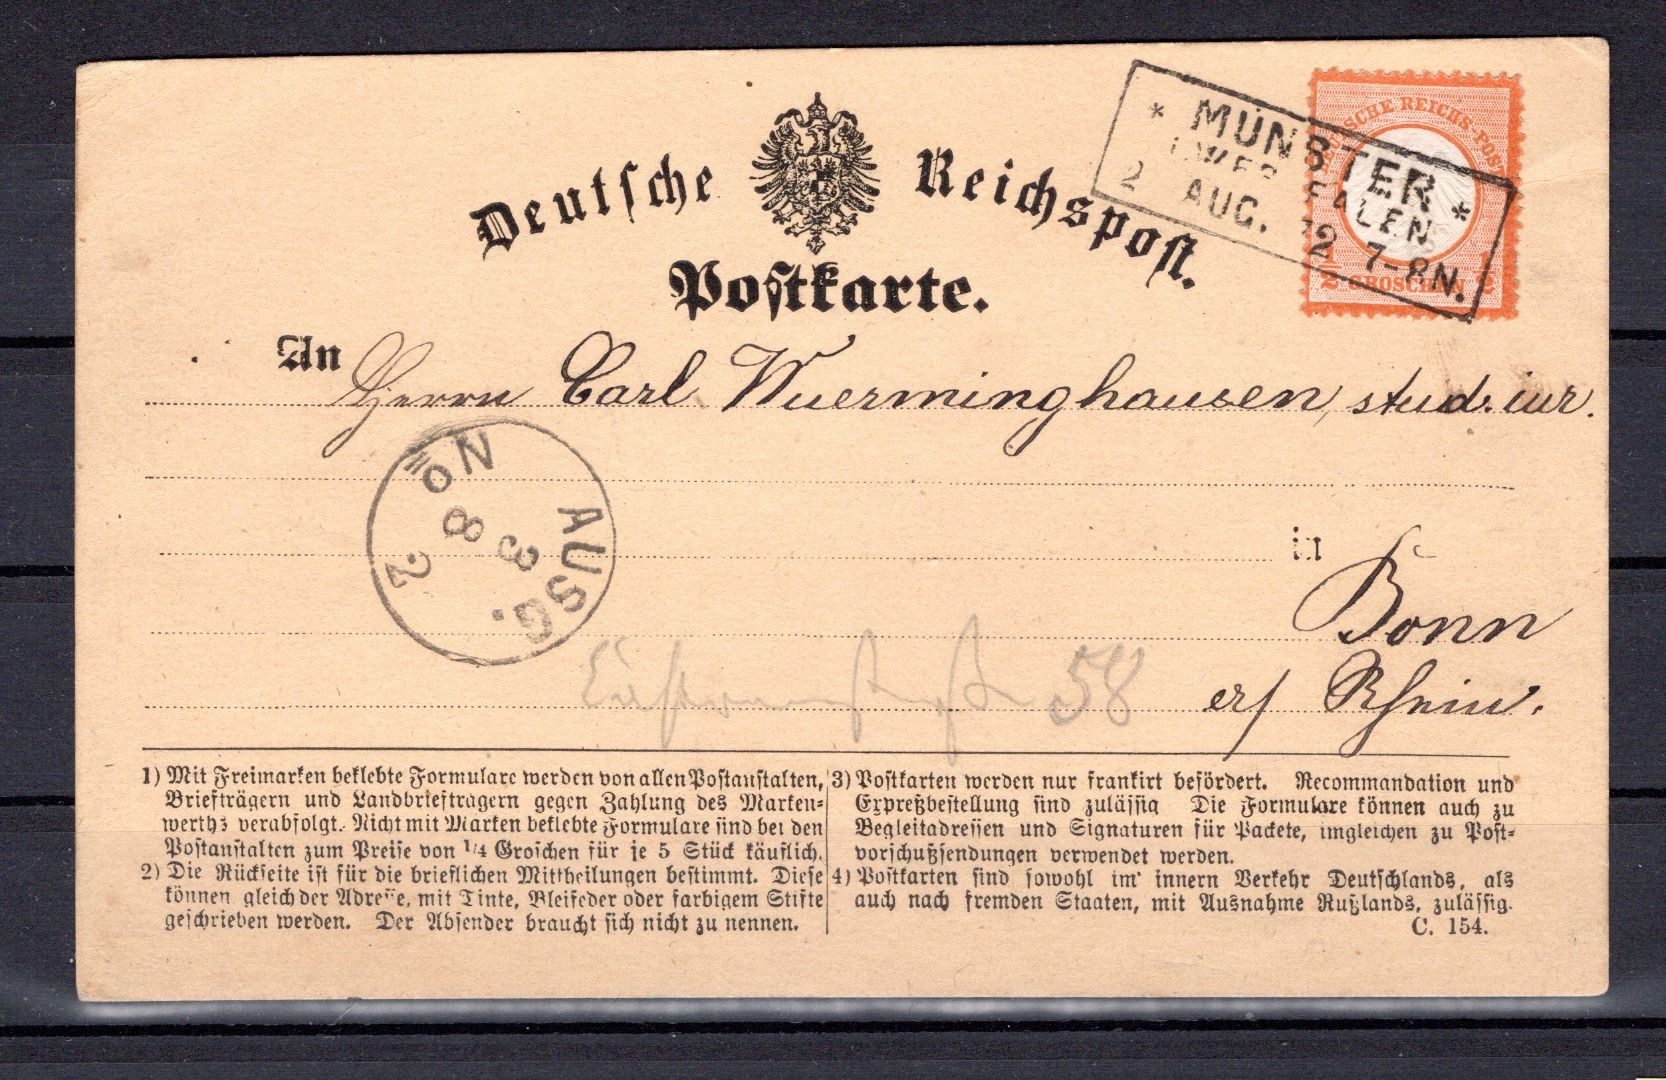 Deutsche Reichspost.
Postkarte.
* MÜNSTER *
2 AUG. 72 7-8N.
DEUTSCHE REICHS-POST
1/2 GROSCHEN 1/2
An Herrn Carl Wuerminghausen, stud. iur.
No 2
8
3
AUSG.
in Bonn
a/ Rhein.
58
1) Mit Freimarken beklebte Formulare werden von allen Postanstalten,
Briefträgern und Landbriefträgern gegen Zahlung des Marken-
werths verabfolgt. Nicht mit Marken beklebte Formulare sind bei den
Postanstalten zum Preise von 1/4 Groschen für je 5 Stück käuflich.
2) Die Rückseite ist für die brieflichen Mittheilungen bestimmt. Diese
können gleich der Adresse, mit Tinte, Bleifeder oder farbigem Stifte
geschrieben werden. Der Absender braucht sich nicht zu nennen.
3) Postkarten werden nur frankirt befördert. Recommandation und
Expreßbestellung sind zulässig Die Formulare können auch zu
Begleitadressen und Signaturen für Packete, imgleichen zu Post-
vorschußsendungen verwendet werden.
4) Postkarten sind sowohl im innern Verkehr Deutschlands, als
auch nach fremden Staaten, mit Ausnahme Rußlands, zulässig.
C. 154.